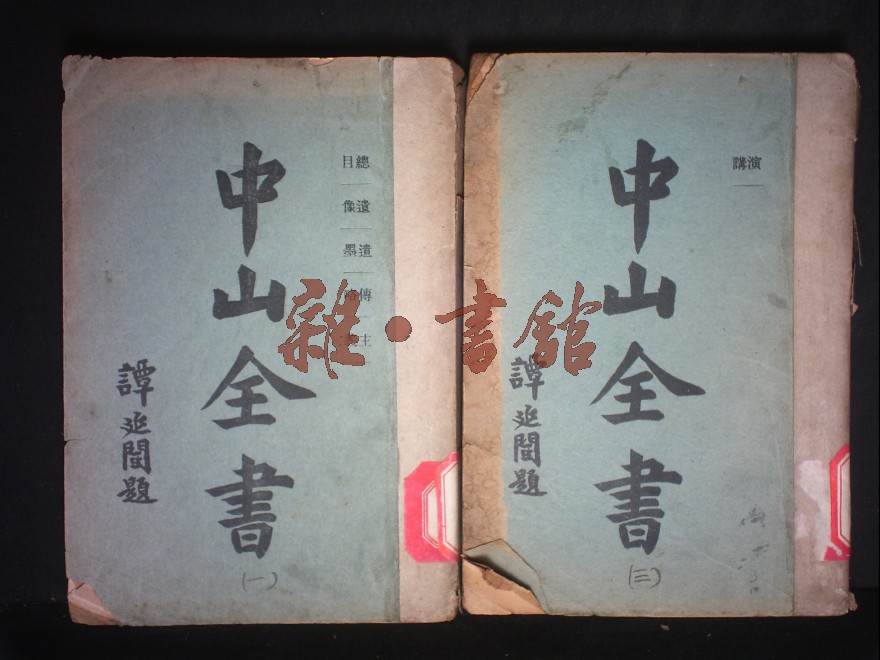 中山全書
(一)
譚延闓題
總目
遺像
遺墨
傳略
主義
中山全書
(三)
譚延闓題
演講
雜·書館